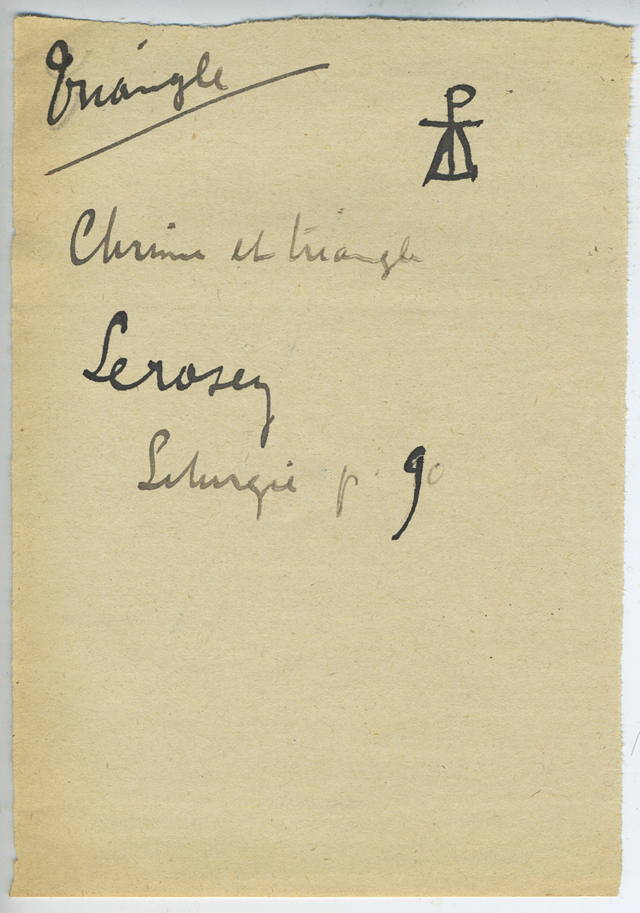 triangle
Chrisme et triangle
Lerosey
Liturgie p. 90